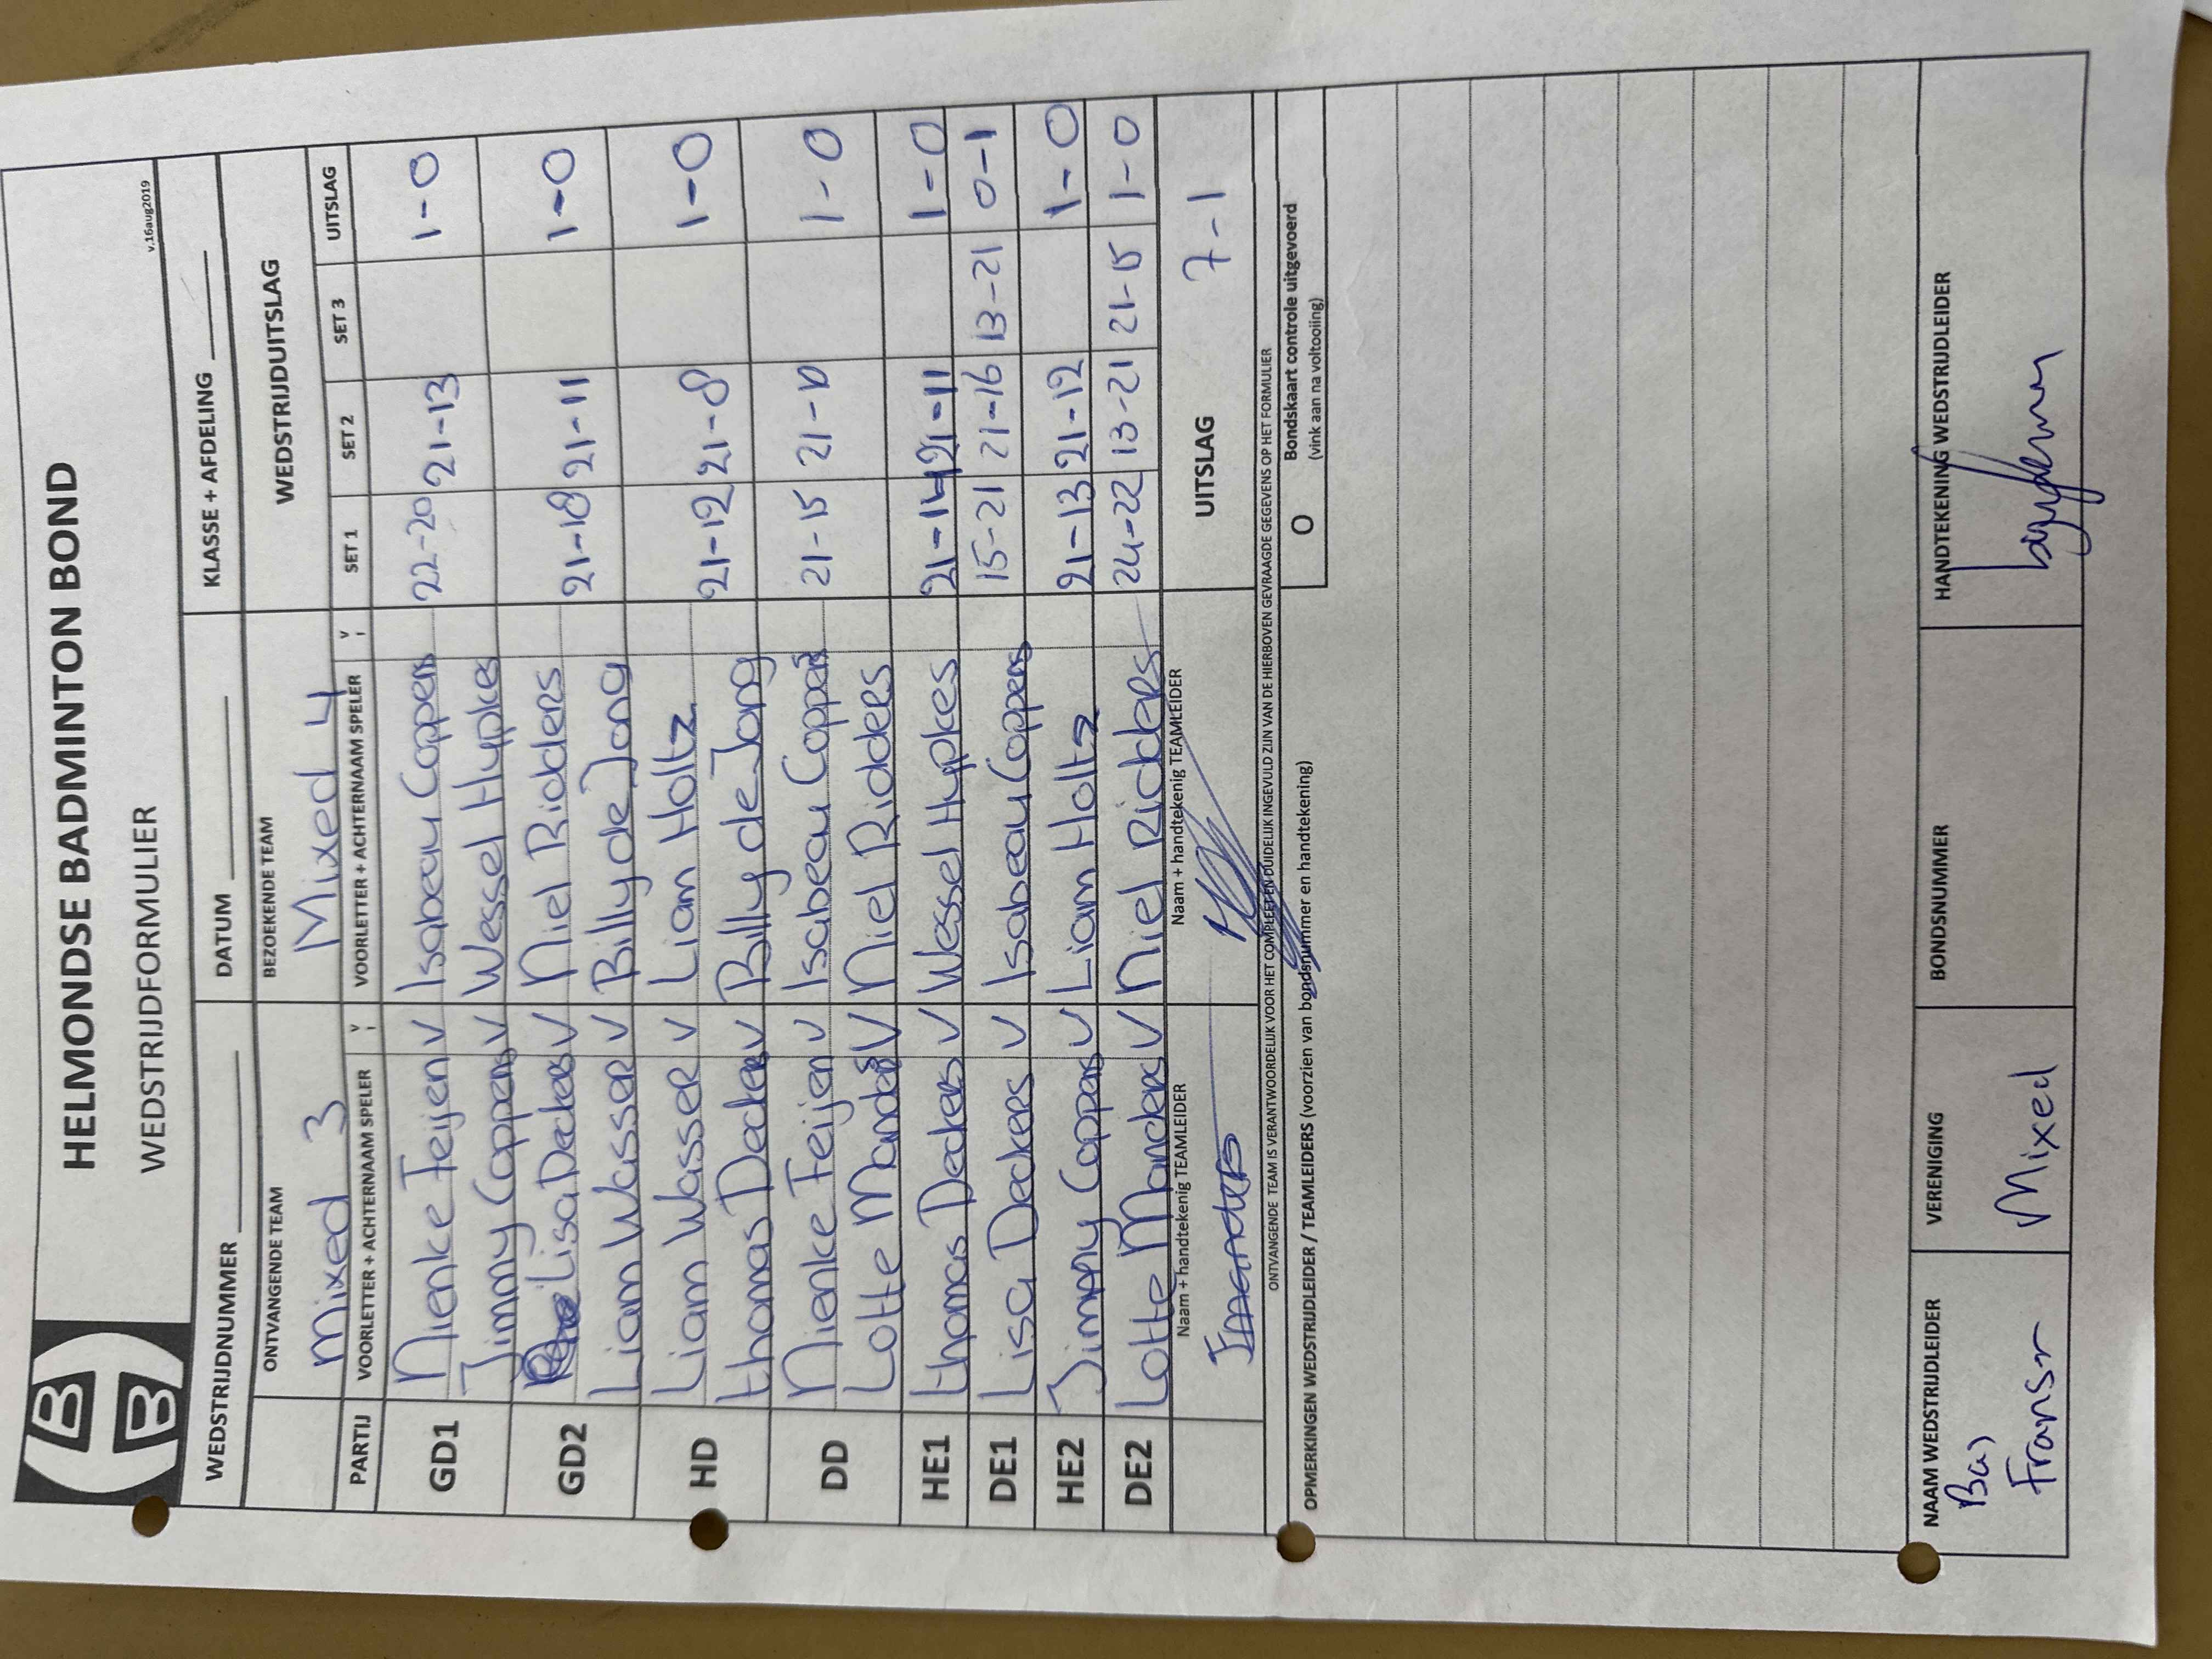 HELMONDSE BADMINTON BOND
WEDSTRIJDFORMULIER
v.16aug2019
WEDSTRIJDNUMMER DATUM KLASSE + AFDELING
ONTVANGENDE TEAM BEZOEKENDE TEAM WEDSTRIJDUITSLAG
Mixed 3 Mixed 4
PARTIJ VOORLETTER + ACHTERNAAM SPELER V VOORLETTER + ACHTERNAAM SPELER V SET 1 SET 2 SET 3 UITSLAG
GD1 Nienke Feijen V Isabeau Coppens 22-20 21-13 1-0
Jimmy Coppens V Wessel Hypkes
GD2 Lisa Deckers V Niel Ridders 21-18 21-11 1-0
Liam Wasser V Billy de Jong
HD Liam Wasser V Liam Holtz 21-12 21-8 1-0
thomas Deckers V Billy de Jong
DD Nienke Feijen V Isabeau Coppens 21-15 21-10 1-0
Lotte Manders V Niel Ridders
HE1 thomas Deckers V Wessel Hypkes 21-14 21-11 1-0
DE1 Lisa Deckers V Isabeau Coppens 15-21 21-16 13-21 0-1
HE2 Jimmy Coppens V Liam Holtz 21-13 21-12 1-0
DE2 Lotte Manders V Niel Ridders 24-22 13-21 21-15 1-0
Naam + handtekenig TEAMLEIDER Naam + handtekenig TEAMLEIDER UITSLAG 7-1
ONTVANGENDE TEAM IS VERANTWOORDELIJK VOOR HET COMPLEET EN DUIDELIJK INGEVULD ZIJN VAN DE HIERBOVEN GEVRAAGDE GEGEVENS OP HET FORMULIER
OPMERKINGEN WEDSTRIJDLEIDER / TEAMLEIDERS (voorzien van bondsnummer en handtekening)
O Bondskaart controle uitgevoerd
(vink aan na voltooiing)
NAAM WEDSTRIJDLEIDER VERENIGING BONDSNUMMER HANDTEKENING WEDSTRIJDLEIDER
Bas
Mixed